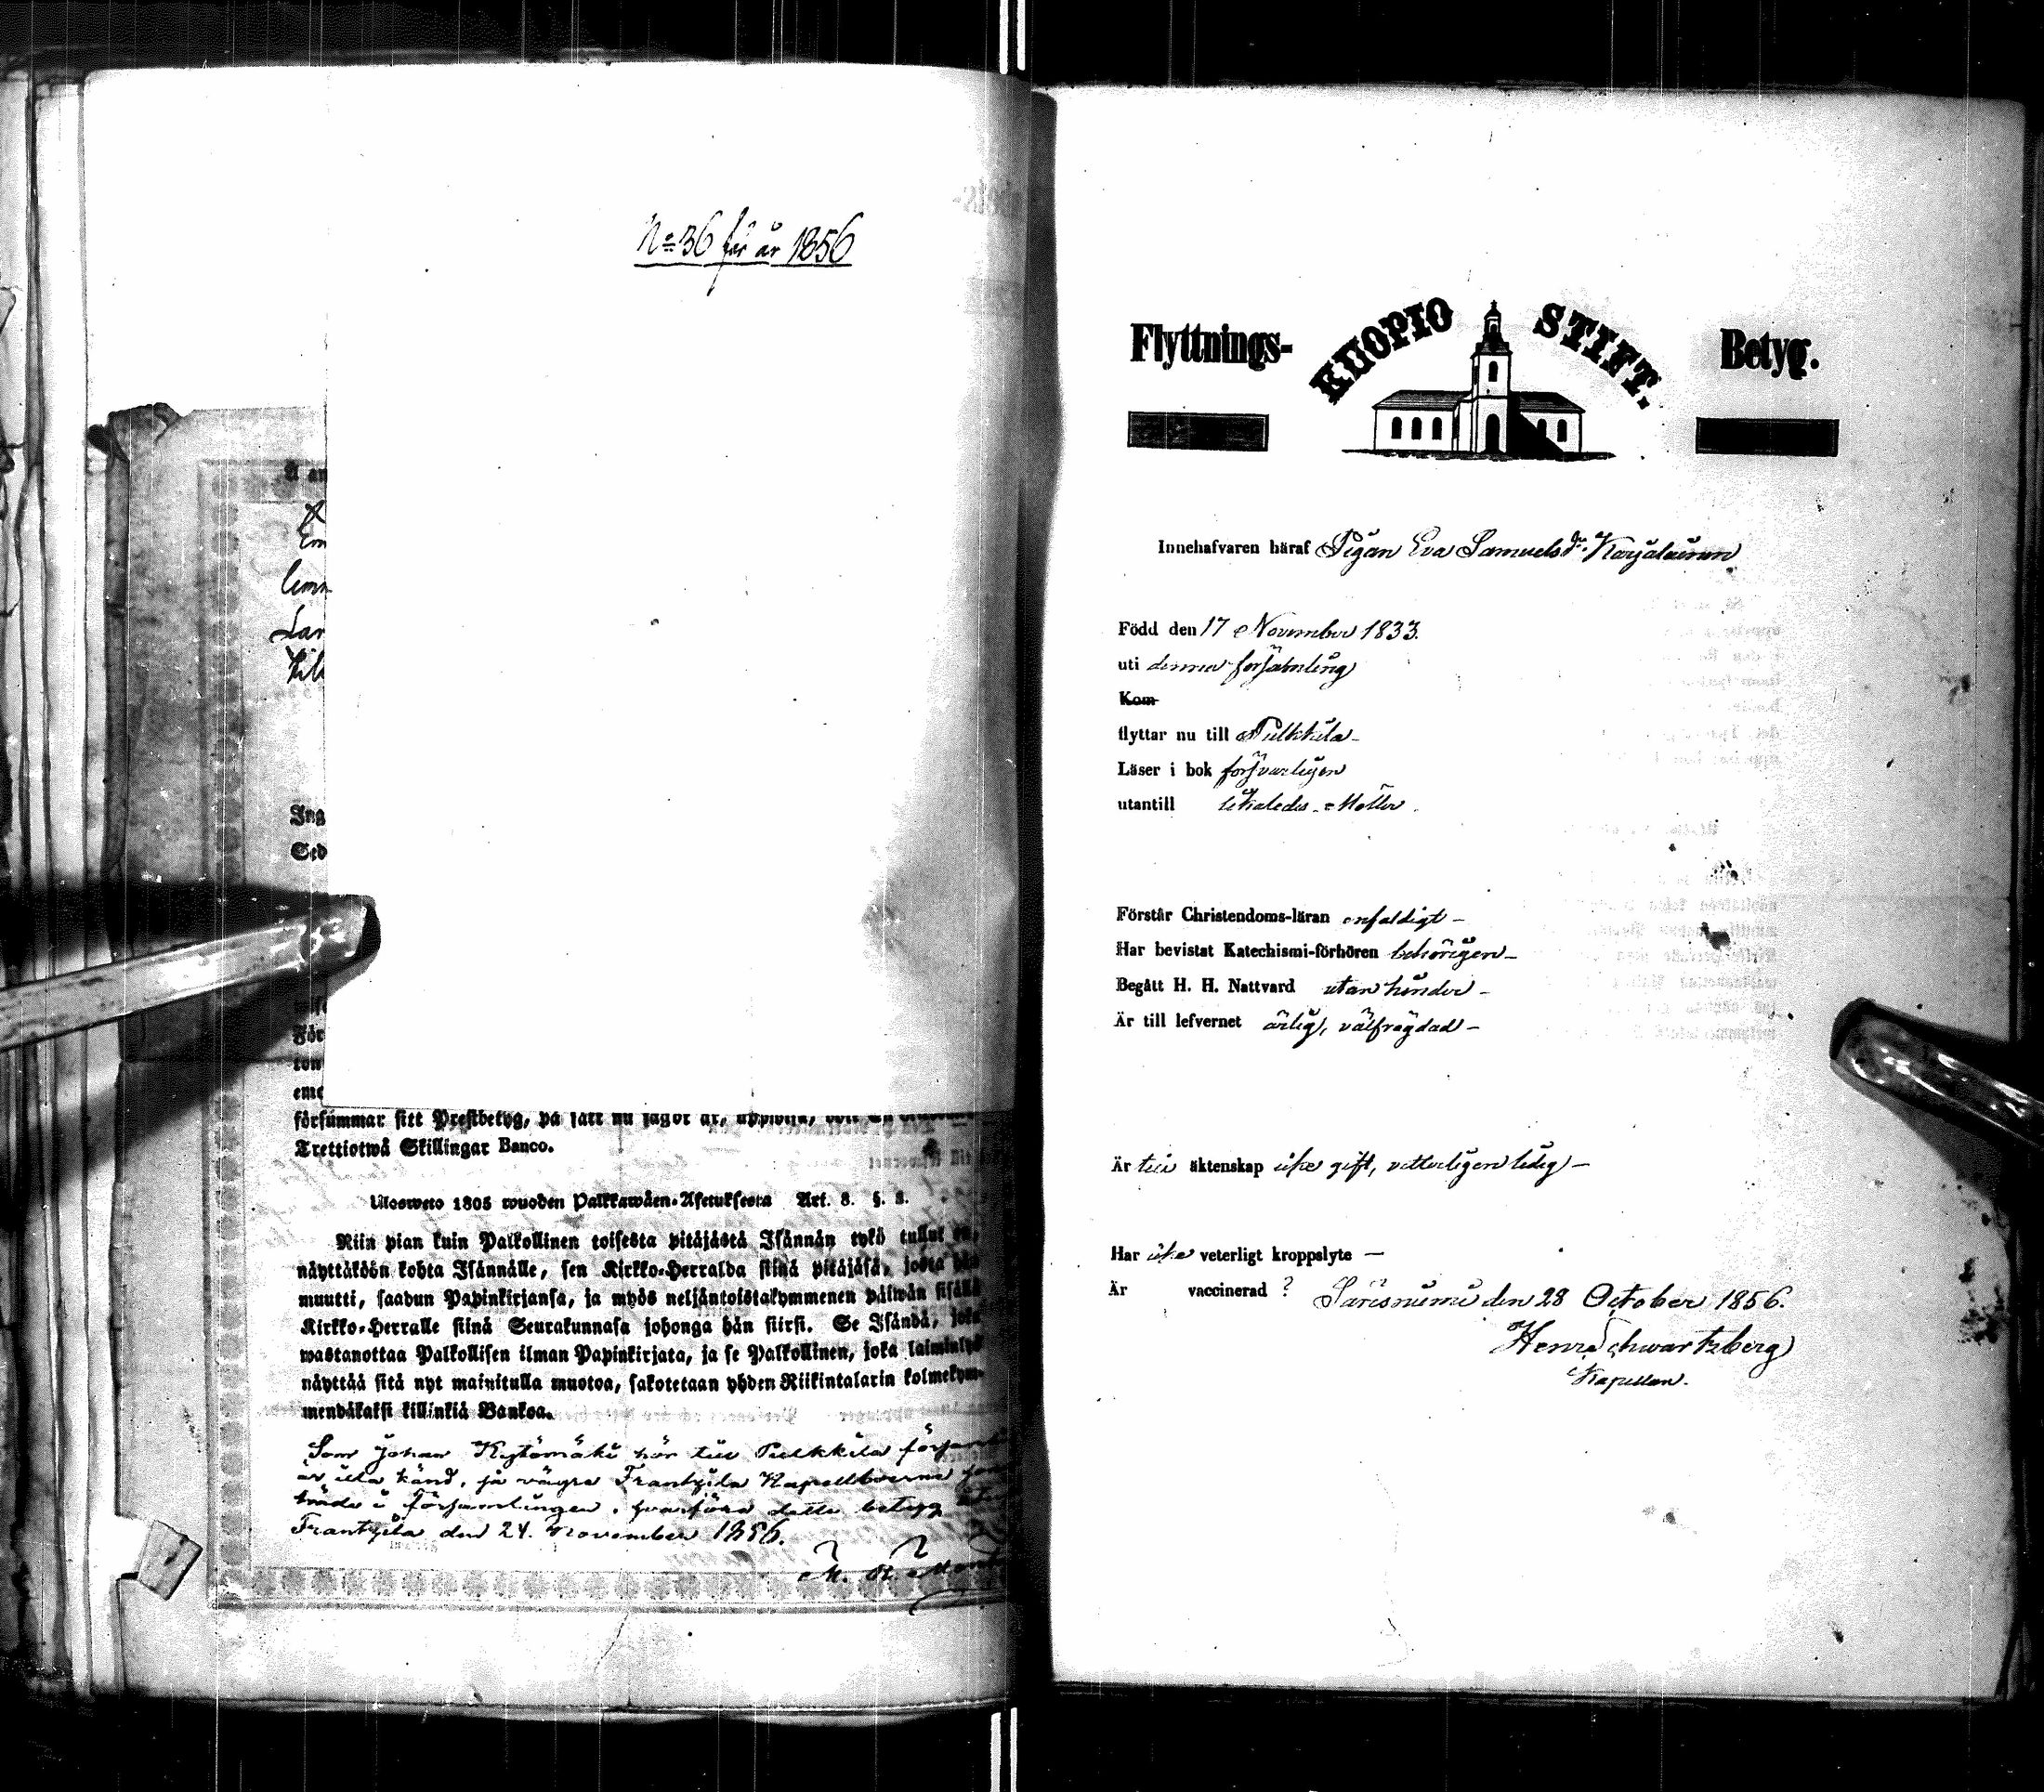 No 36 för år 1856
Ing
Sed
För
försummar sitt Prestbetyg, på sätt nu sagdt är,
Trettiotwå Skillingar Banco.
Ulosweto 1805 wuoden Palkkawäen-Asetuksesta Art. 8. §. 8.
Niin pian kuin Palkollinen toisesta pitäjästä Isännän tykö tullut on,
näyttäköön kohta Isännälle, sen Kirkko-Herralda siinä pitäjäsä, josta hän
muutti, saadun Papinkirjansa, ja myös neljäntoistakymmenen päiwän sisällä
Kirkko-Herralle siinä Seurakunnasa johonga hän siirsi. Se Isändä, joka
wastanottaa Palkollisen ilman Papinkirjata, ja se Palkollinen, joka laiminlyö
näyttää sitä nyt mainitulla muotoa, sakotetaan yhden Riikintalarin kolmekym-
mendäkaksi killinkiä Bankoa.
Som Johan Kytömäki hör till Pulkkila församl
är illa känd, så vägra Frantzila Kapellboerne
träde i Församlingen, hvarföre detta betyg
Frantzila den 24. November 1856.
Flyttnings- KUOPIO STIFT. Betyg.
Innehafvaren häraf Pigan Eva Samuelsdr Karjalainen
Född den 17 November 1833.
uti denna församling
Kom
flyttar nu till Pulkkila
Läser i bok försvarligen
utantill
Förstår Christendoms-läran enfaldigt –
Har bevistat Katechismi-förhören behörigen –
Begått H. H. Nattvard utan hinder –
Är till lefvernet ärlig, välfrägdad –
Är till äktenskap icke gift, vetterligen ledig –
Har icke veterligt kroppslyte –
Är vaccinerad ?
Säresniemi den 28 October 1856.
Henr Schwartzberg
Kapellan.